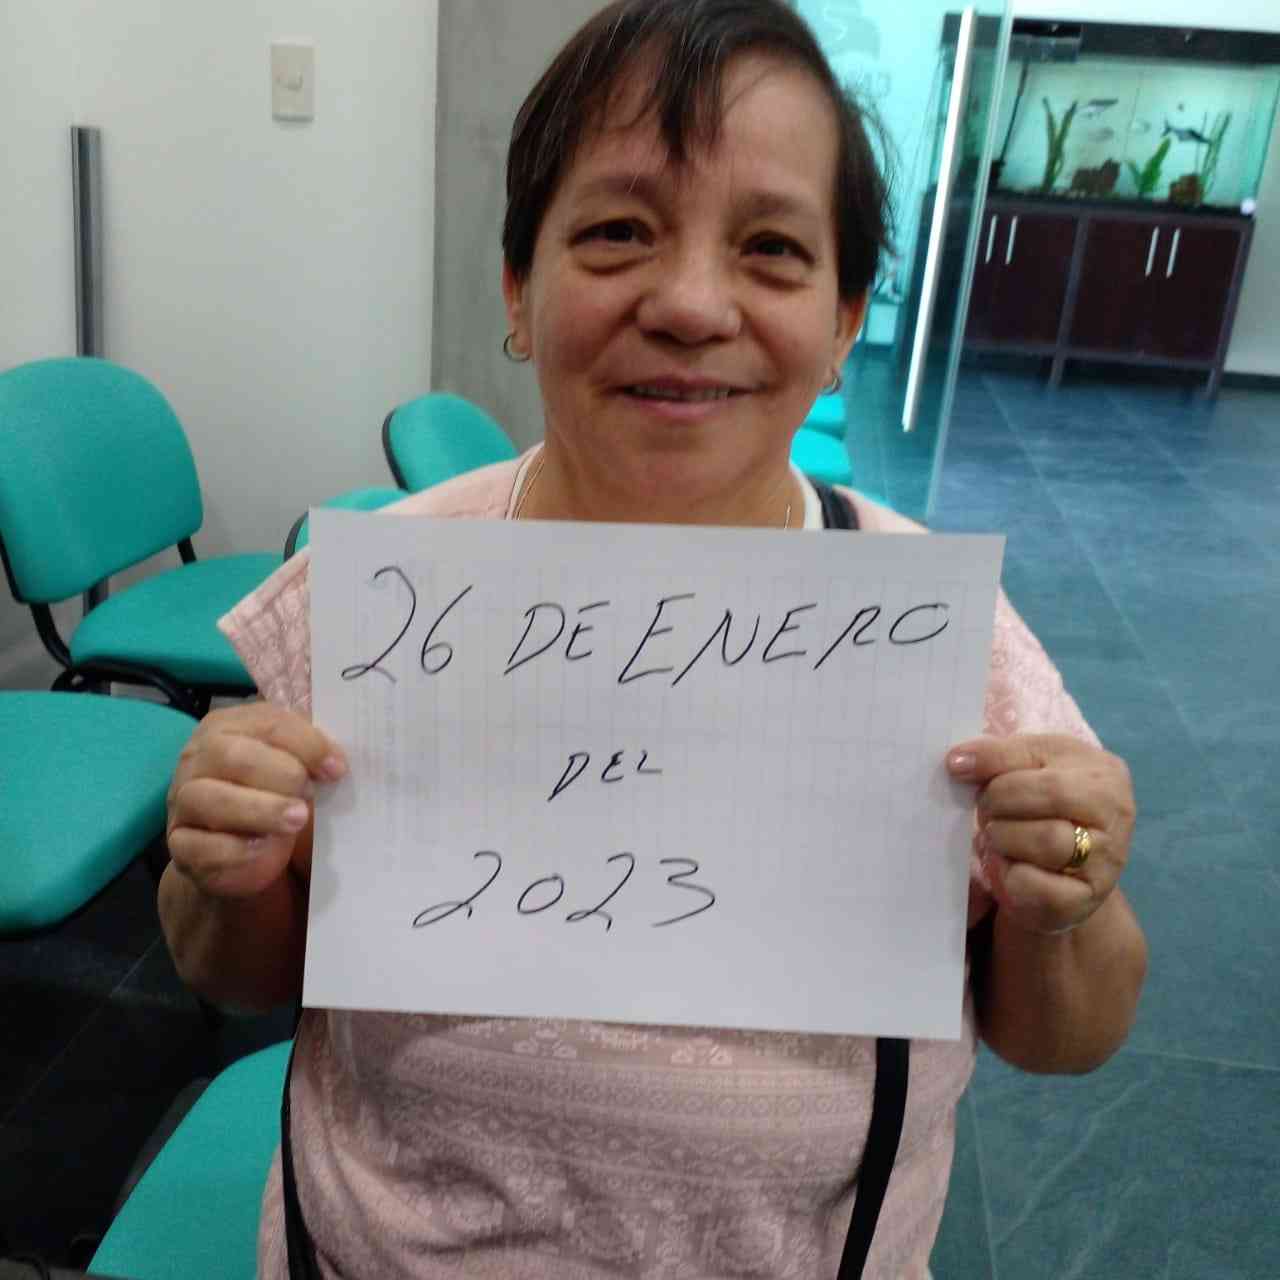 26 DE ENERO
DEL
2023